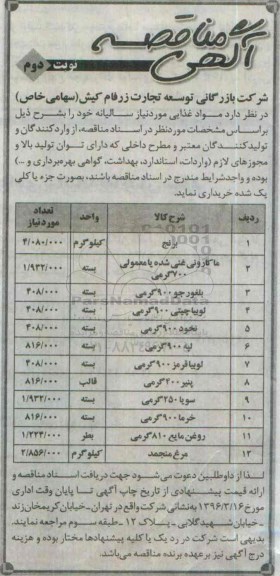 آگهی مناقصه
نوبت دوم
شرکت بازرگانی توسعه تجارت زرفام کیش (سهامی خاص)
در نظر دارد مواد غذایی موردنیاز سالیانه خود را بشرح ذیل
براساس مشخصات موردنظر در اسناد مناقصه، از واردکنندگان و
تولیدکنندگان معتبر و مطرح داخلی که دارای توان تولید بالا و
مجوزهای لازم (واردات، استاندارد، بهداشت، گواهی بهره‌برداری و ...)
بوده و واجدشرایط مندرج در اسناد مناقصه باشند، بصورت جزء یا کلی
یک شده خریداری نماید.
ردیف شرح کالا واحد تعداد موردنیاز
۱ برنج کیلوگرم ۴/۰۸۰/۰۰۰
۲ ماکارونی غنی شده یا معمولی ۷۰۰گرمی بسته ۱/۹۳۲/۰۰۰
۳ بلغور جو ۹۰۰گرمی بسته ۴۰۸/۰۰۰
۴ لوبیا چیتی ۹۰۰گرمی بسته ۴۰۸/۰۰۰
۵ نخود ۹۰۰گرمی بسته ۴۰۸/۰۰۰
۶ لپه ۹۰۰گرمی بسته ۸۱۶/۰۰۰
۷ لوبیا قرمز ۹۰۰گرمی بسته ۴۰۸/۰۰۰
۸ پنیر ۴۰۰گرمی قالب ۸۱۶/۰۰۰
۹ سویا ۲۵۰گرمی بسته ۱/۹۳۲/۰۰۰
۱۰ خرما ۹۰۰گرمی بسته ۸۱۶/۰۰۰
۱۱ روغن مایع ۸۱۰گرمی بطر ۱/۲۲۴/۰۰۰
۱۲ مرغ منجمد کیلوگرم ۲/۸۵۶/۰۰۰
لذا از داوطلبین دعوت می‌شود جهت دریافت اسناد مناقصه و
ارائه قیمت پیشنهادی از تاریخ چاپ آگهی تا پایان وقت اداری
مورخ ۱۳۹۶/۳/۱۶ به نشانی شرکت واقع در تهران-خیابان کریمخان زند
-خیابان شهید گلابی-پلاک ۱۲-طبقه سوم مراجعه نمایند.
بدیهی است شرکت در رد یک یا کلیه پیشنهادها مختار بوده و هزینه
درج آگهی نیز بر عهده برنده مناقصه می‌باشد.